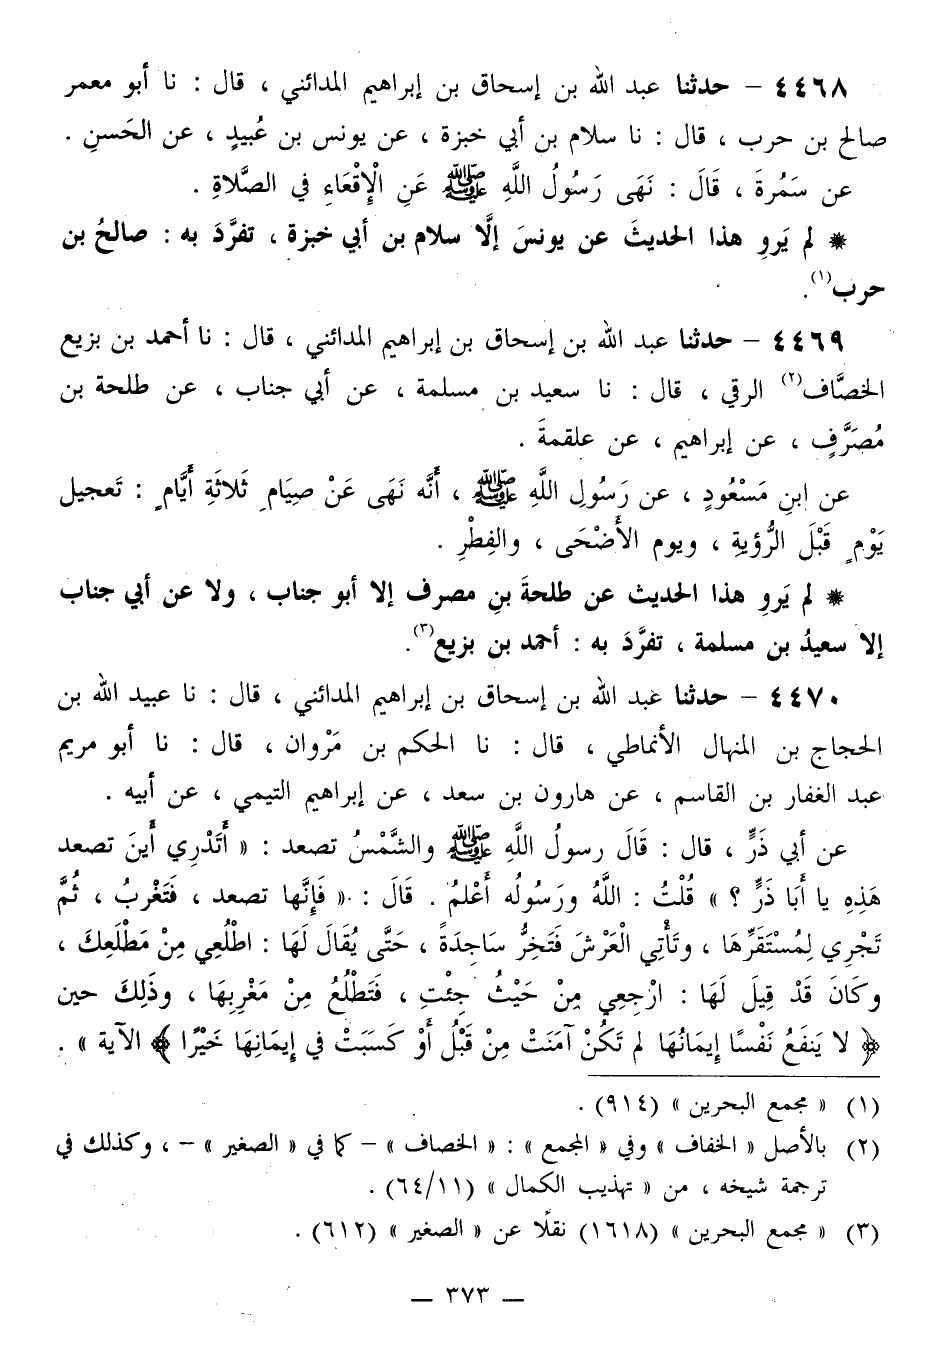 ٤٤٦٨ – حدثنا عبد الله بن إسحاق بن إبراهيم المدائني ، قال : نا أبو معمر
صالح بن حرب ، قال : نا سلام بن أبي خبزة ، عن يونس بن عُبيدٍ ، عن الحَسنِ .
عن سَمُرةَ ، قَالَ : نَهَى رَسُولُ اللَّهِ ﷺ عَنِ الْإِقْعَاءِ في الصَّلاةِ .
* لم يَروِ هذا الحديثَ عن يونسَ إلَّا سلام بن أبي خبزة ، تفرَّدَ به : صالحُ بن
حرب(١).
٤٤٦٩ – حدثنا عبد الله بن إسحاق بن إبراهيم المدائني ، قال : نا أحمد بن بزيع
الخصَّاف(٢) الرقي ، قال : نا سعيد بن مسلمة ، عن أبي جناب ، عن طلحة بن
مُصَرَّفٍ ، عن إبراهيم ، عن علقمةَ .
عن ابنِ مَسْعُودٍ ، عن رَسُولِ اللَّهِ ﷺ ، أَنَّه نَهَى عَنْ صِيَامِ ثَلاثَةِ أَيَّامٍ : تَعجيل
يَوْمٍ قَبْلَ الرُّؤيةِ ، ويوم الأَضْحَى ، والفِطْرِ .
* لم يَروِ هذا الحديث عن طلحةَ بنِ مصرف إلا أبو جناب ، ولا عن أبي جناب
إلا سعيدُ بن مسلمة ، تفرَّدَ به : أحمد بن بزيع(٣).
٤٤٧٠ – حدثنا عبد الله بن إسحاق بن إبراهيم المدائني ، قال : نا عبيد الله بن
الحجاج بن المنهال الأنماطي ، قال : نا الحكم بن مَرْوان ، قال : نا أبو مريم
عبد الغفار بن القاسم ، عن هارون بن سعد ، عن إبراهيم التيمي ، عن أبيه .
عن أبي ذَرٍّ ، قال : قَالَ رسولُ اللَّهِ ﷺ والشَّمْسُ تصعد : « أَتَدْرِي أَينَ تصعد
هَذِهِ يا أَبَا ذَرٍّ ؟ » قُلْتُ : اللَّهُ ورَسُولُه أَعْلمُ . قَالَ : « فَإِنَّها تصعد ، فَتَغْربُ ، ثُمَّ
تَجْرِي لِمُسْتَقَرِّهَا ، وتَأْتِي الْعَرْشَ فَتَخِرُّ سَاجِدَةً ، حَتَّى يُقَالَ لَهَا : اطْلُعِي مِنْ مَطْلَعِكَ ،
وكَانَ قَدْ قِيلَ لَهَا : ارْجِعِي مِنْ حَيْثُ جِئْتِ ، فَتَطْلُعُ مِنْ مَغْرِبِهَا ، وذَلِكَ حين
﴿ لا يَنفَعُ نَفْسًا إِيمَانُهَا لم تَكُنْ آمَنَتْ مِنْ قَبْلُ أَوْ كَسَبَتْ في إِيمَانِهَا خَيْرًا ﴾ الآية » .
(١) « مجمع البحرين » (٩١٤) .
(٢) بالأصل « الخفاف » وفي « المجمع » : « الخصاف » – كما في « الصغير » – ، وكذلك في
ترجمة شيخه ، من « تهذيب الكمال » (٦٤/١١) .
(٣) « مجمع البحرين » (١٦١٨) نقلًا عن « الصغير » (٦١٢) .
– ٣٧٣ –